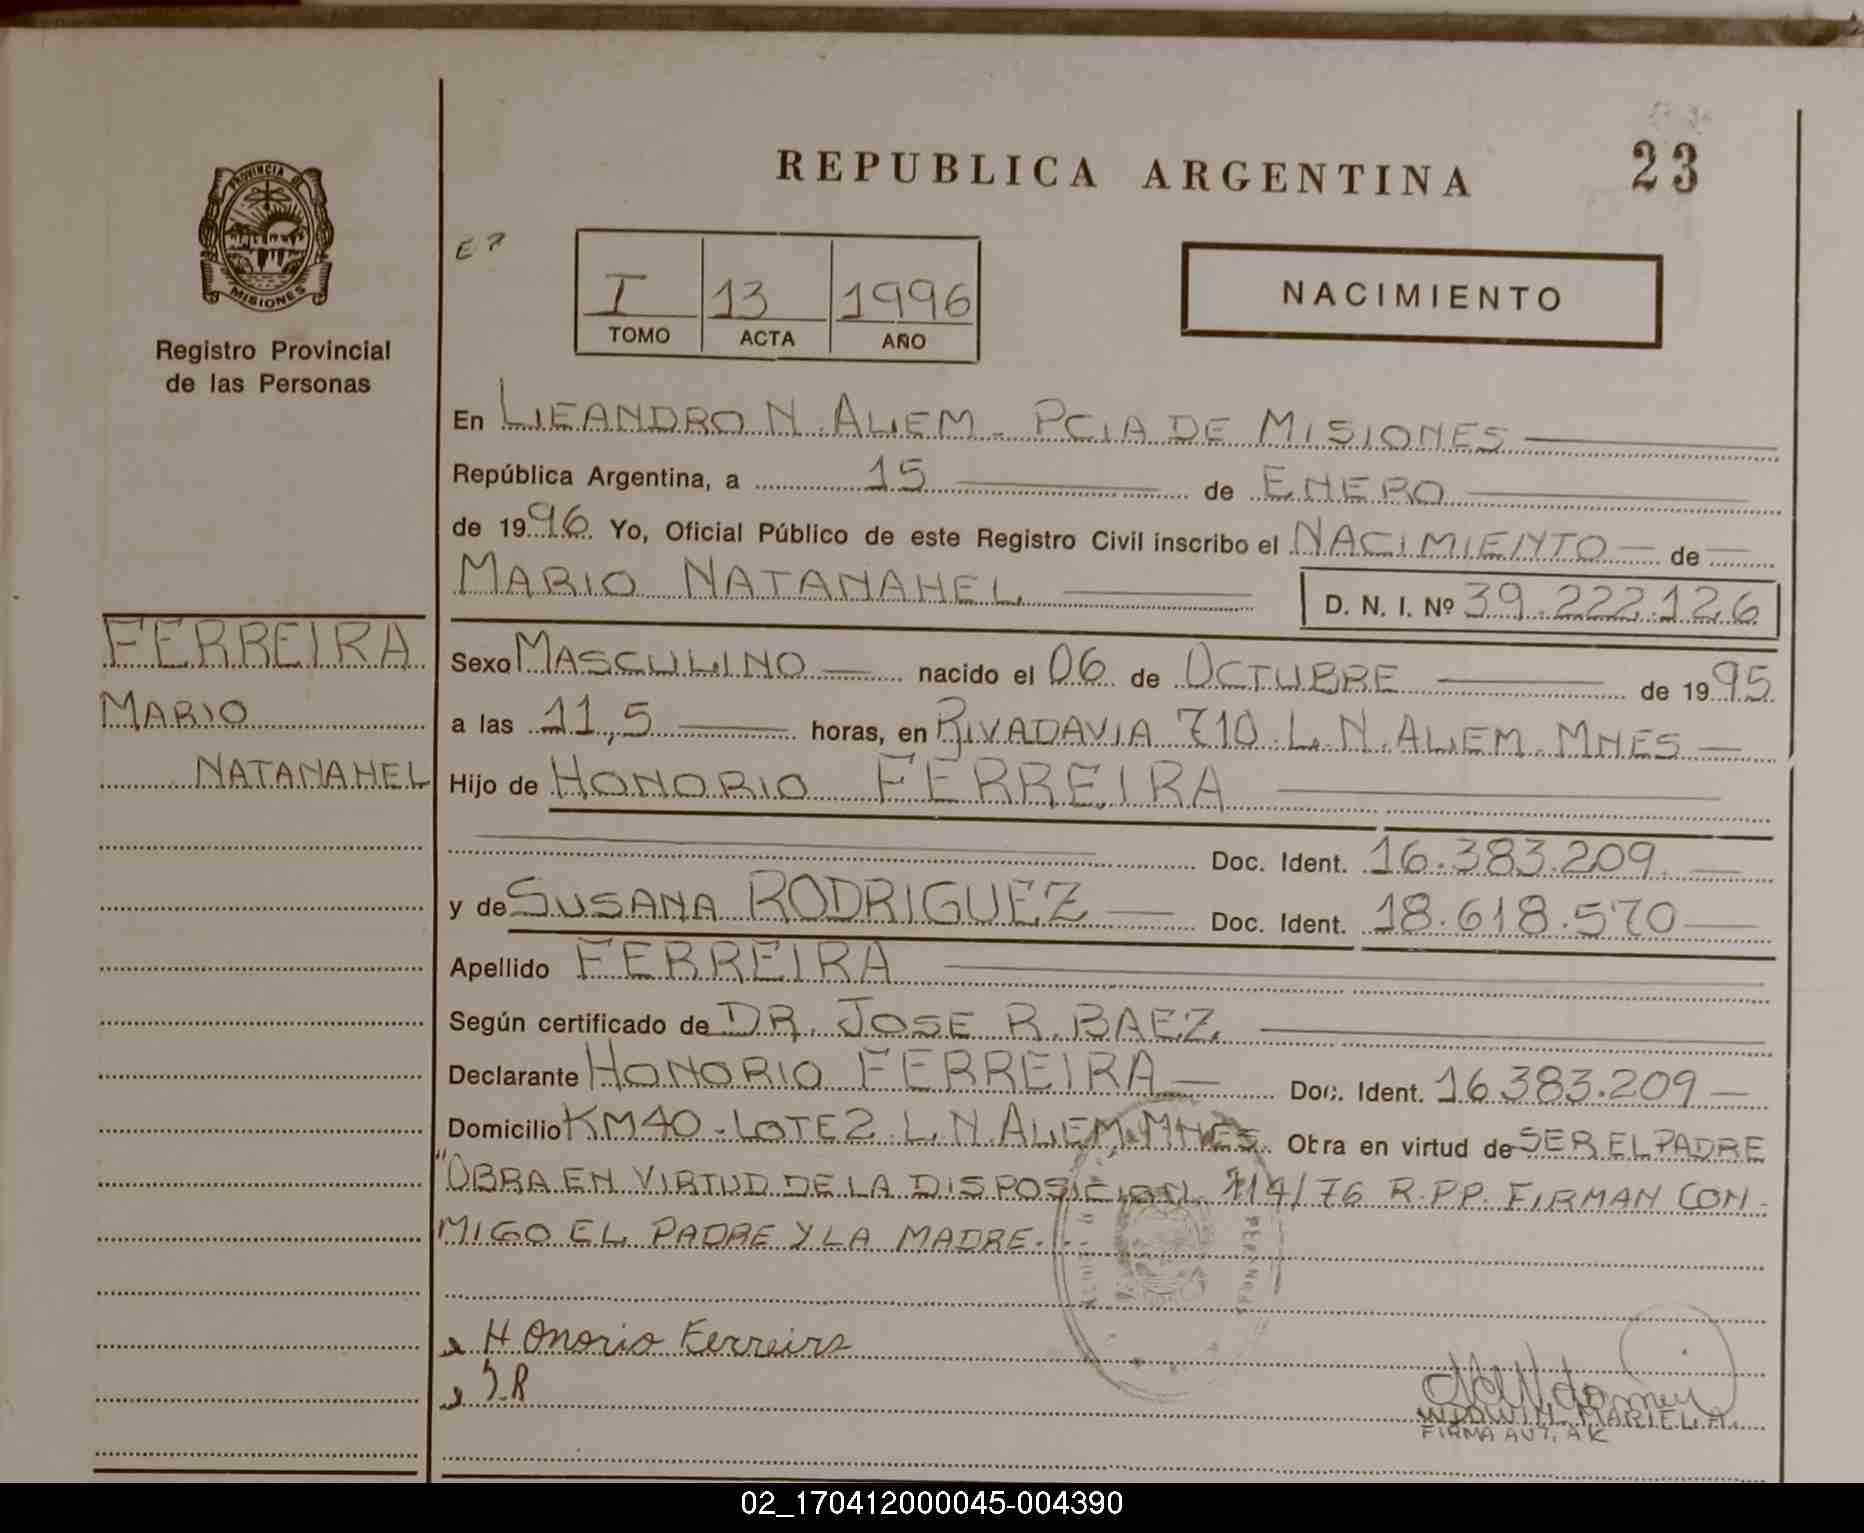 REPUBLICA ARGENTINA
23
PROVINCIA DE
MISIONES
Registro Provincial
de las Personas
I 13 1996
TOMO ACTA AÑO
NACIMIENTO
En LEANDRO N. ALEM - PCIA DE MISIONES
República Argentina, a 15 de ENERO
de 1996 Yo, Oficial Público de este Registro Civil inscribo el NACIMIENTO de
MARIO NATANAHEL D. N. I. Nº 39.222.126
FERREIRA
MARIO
NATANAHEL
Sexo MASCULINO nacido el 06 de OCTUBRE de 1995
a las 11,5 horas, en RIVADAVIA 710. L. N. ALEM. MNES
Hijo de HONORIO FERREIRA
Doc. Ident. 16.383.209.
y de SUSANA RODRIGUEZ Doc. Ident. 18.618.570
Apellido FERREIRA
Según certificado de DR. JOSE R. BAEZ
Declarante HONORIO FERREIRA Doc. Ident. 16.383.209
Domicilio KM40 - LOTE2. L. N. ALEM. MNES. Obra en virtud de SER EL PADRE
"OBRA EN VIRTUD DE LA DISPOSICION 714/76 R.P.P. FIRMAN CON-
MIGO EL PADRE Y LA MADRE.
Honorio Ferreira
S.R
MARIEL A.
FIRMA AUT. A K
02_170412000045-004390